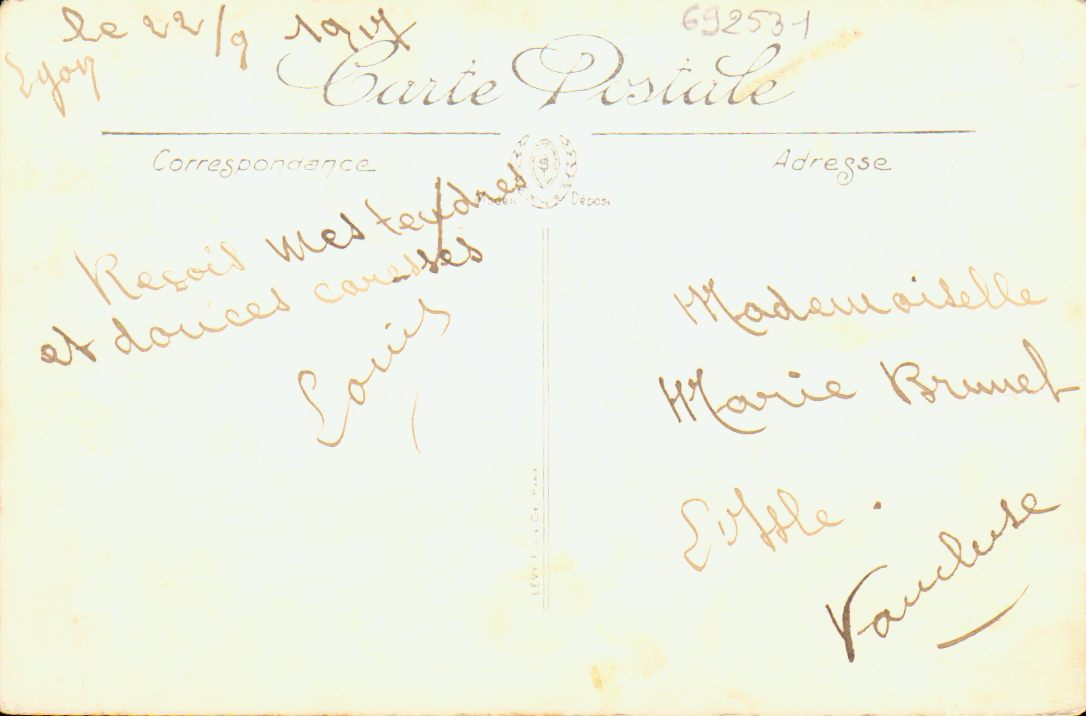 le 22/9 1917
692531
Lyon
Carte Postale
Correspondance
Adresse
Modèle Déposé
Reçois mes tendres
et douces caresses
Louis
Mademoiselle
Marie Brunet
L'Isle .
Vaucluse